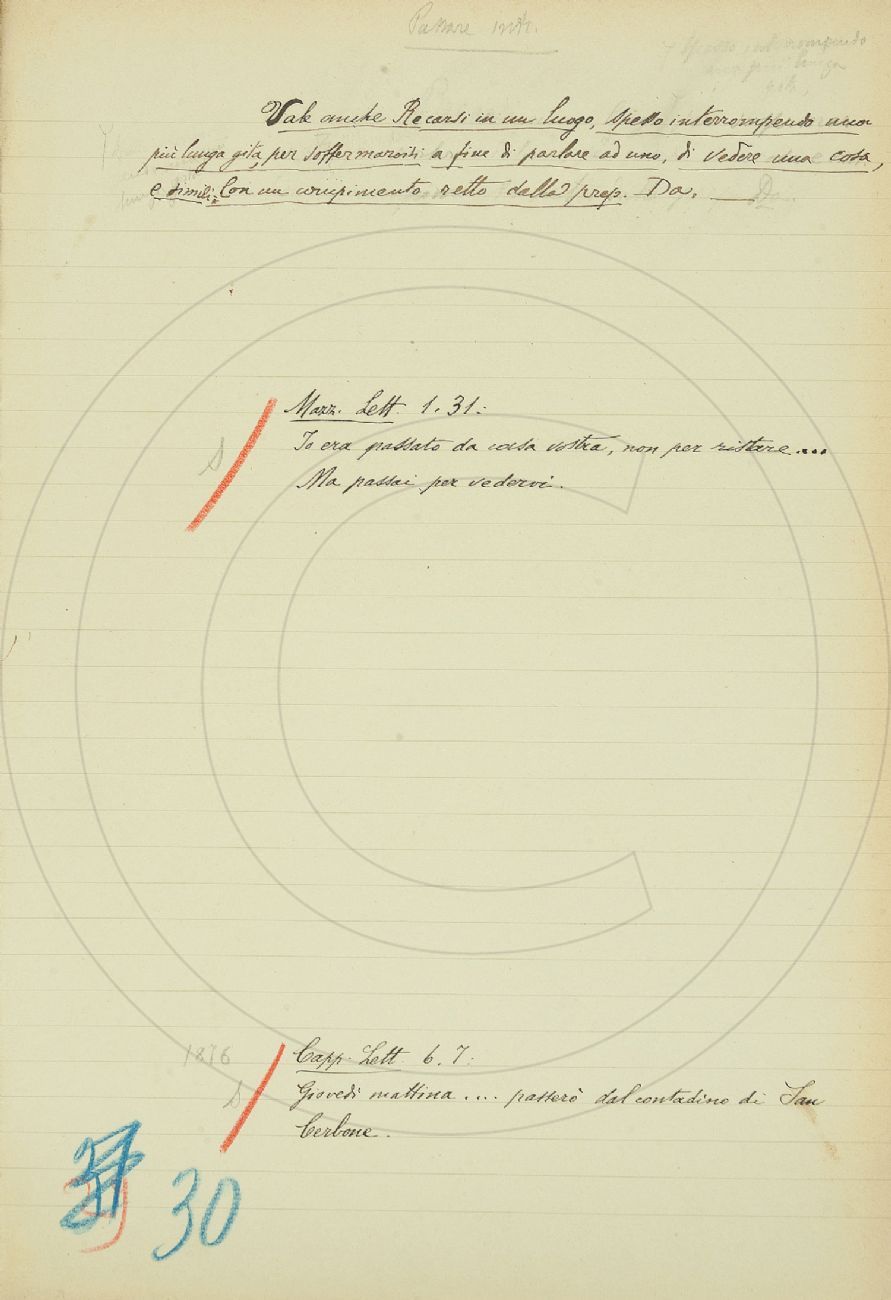 Passare intr.
Vale anche Recarsi in un luogo, spesso interrompendo una
più lunga gita, per soffermarvisi a fine di parlare ad uno, di vedere una cosa,
e simili; Con un compimento retto dalla prep. Da.
Mazz. Lett. 1. 31:
Io era passato da casa vostra, non per ristare....
Ma passai per vedervi.
S
1876
Capp. Lett. 6. 7:
Giovedì mattina.... passerò dal contadino di San
Cerbone.
S
30